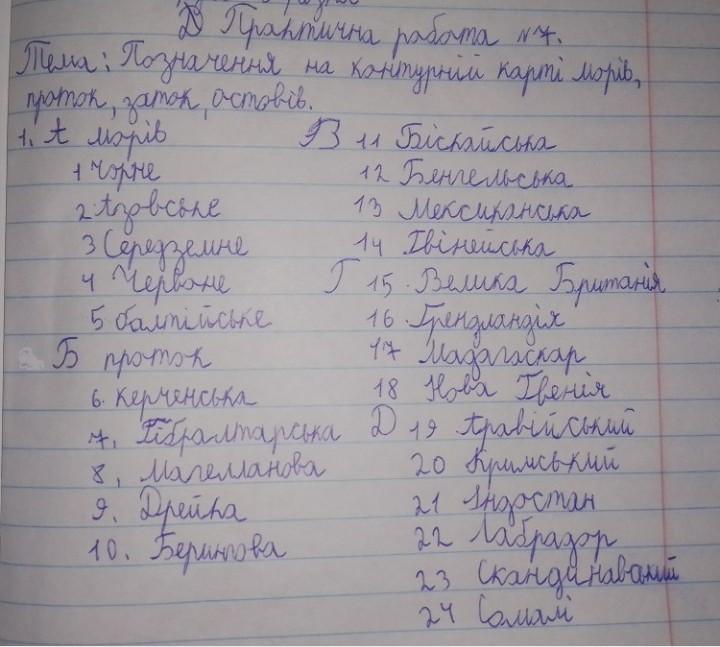 Практична работа №7.
Тема: Позначення на контурній карті морів,
проток, заток, остовів.
1. А морів
1 Чорне
2 Азовське
3 Середземне
4 Червоне
5 балтійське
Б проток
6. керченська
7. Гібралтарська
8. Магелланова
9. Дрейка
10. Берингова
В 11 Біскайська
12 Бенгельська
13 Мексиканська
14 Гвінейська
Г 15. Велика Британія
16. Грендландія
17 Мадагаскар
18 Нова Гвенія
Д 19 Аравійський
20 Кримський
21 Індостан
22 Лабрадор
23 Скандинавський
24 Сомалі